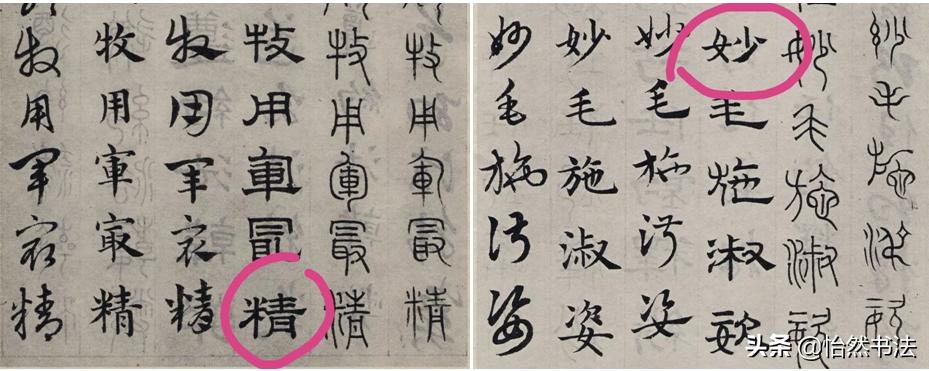 牧用軍最精
牧用軍最精
牧用軍最精
牧用軍最精
牧用軍最精
牧用軍最精
妙毛施淑姿
妙毛施淑姿
妙毛施淑姿
妙毛施淑姿
妙毛施淑姿
妙毛施淑姿
头条 @怡然书法